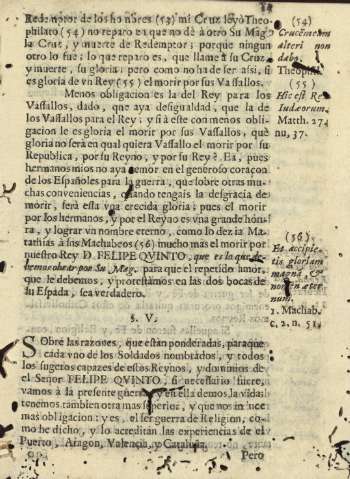 Redemptor de los hombres (53) mi Cruz leyò Theo-
philato (54) no reparo en que no dè à otro Su Mag.
la Cruz, y muerte de Redemptor; porque ningun
otro lo fue: lo que reparo es, que llame à su Cruz
y muerte, su gloria; pero como no ha de ser assi, si
es gloria de vn Rey (55) el morir por sus Vassallos.
Menos obligacion es la del Rey para los
Vassallos, dado, que aya desigualdad, que la de
los Vassallos para el Rey; y si à este con menos obli-
gacion le es gloria el morir por sus Vassallos, què
gloria no serà en qual quiera Vassallo el morir por su
Republica, por su Reyno, y por su Rey? Ea, pues
hermanos mios no aya temor en el generoso coraçon
de los Españoles para la guerra, que sobre otras mu-
chas conveniencias, quando tengais la desgracia de
morir, serà esta vna crecida gloria; pues el morir
por los hermanos, y por el Reyno es vna grande hon-
ra, y lograr vn nombre eterno, como lo dezia Ma-
tathias à los Machabeos (56) mucho mas el morir por
nuestro Rey D. FELIPE QVINTO, que es lo que de-
bemos hazer por Su Mag. para que el repetido amor,
que le debemos, y protestamos en las dos bocas de
su Espada, sea verdadero.
§. V.
SObre las razones, que estàn ponderadas, para que
cada vno de los Soldados nombrados, y todos
los sugetos capazes de estos Reynos, y dominios de
el Señor FELIPE QVINTO, si necessario fuere,
vamos à la presente guerra, y en ella demos la vida;
tenemos tambien otra mas superior, y que nos induce
mas obligacion: y es, el ser guerra de Religion, co-
mo he dicho, y lo acreditan las experiencias de el
Puerto, Aragon, Valencia, y Cataluña.
Pero
(54)
Crucem meam
alteri non
dabo.
Theophil.
(55)
Hic est Rex
Iudæorum.
Matth. 27.
nu, 37.
(56)
Et accipie-
tis gloriam
magnã, &
nomen æter
num.
1. Machab.
c, 2. n. 51.